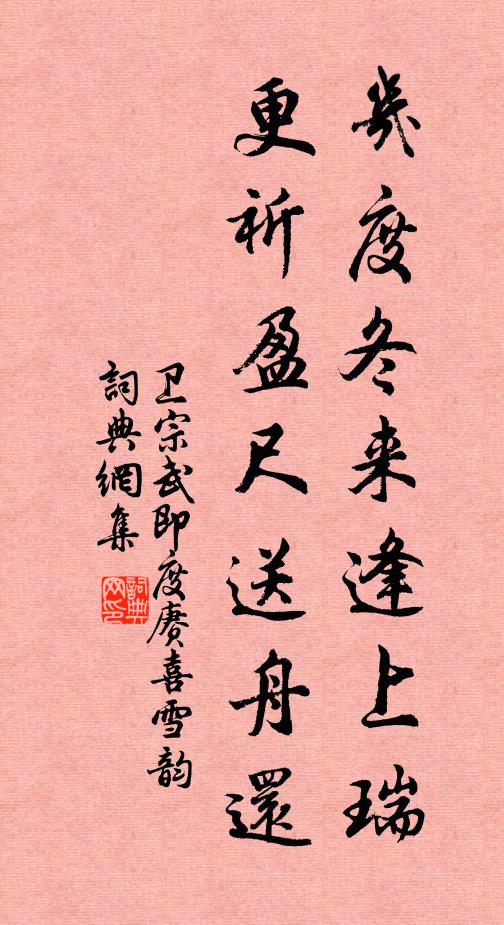 幾度冬来逢上瑞
更祈盈尺送舟還
卫宗武即度赓喜雪韵
詞典網集
詞典网印